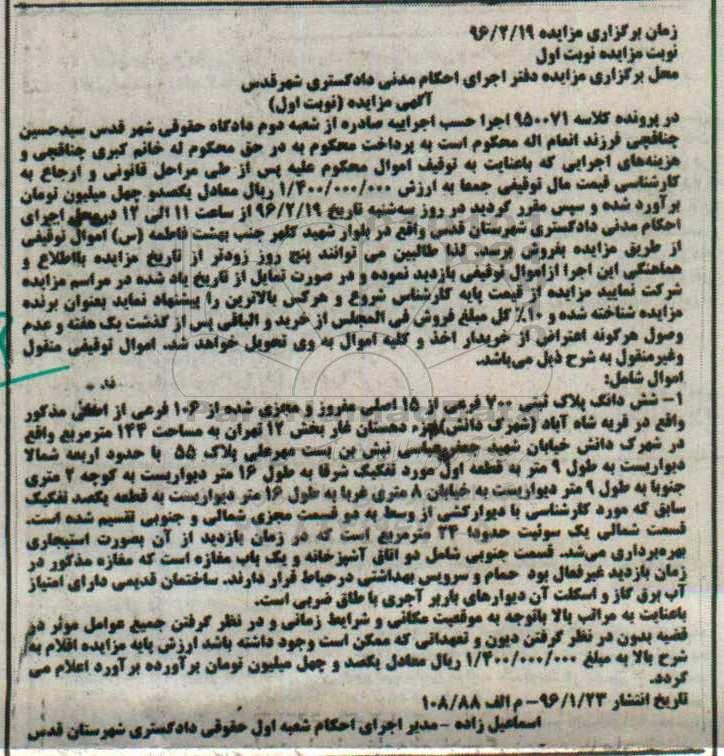 زمان برگزاری مزایده ۹۶/۲/۱۹
نوبت مزایده نوبت اول
محل برگزاری مزایده دفتر اجرای احکام مدنی دادگستری شهرقدس
آگهی مزایده (نوبت اول)
در پرونده کلاسه ۹۵۰۰۷۱ اجرا حسب اجراییه صادره از شعبه دوم دادگاه حقوقی شهر قدس سیدحسین
چناقچی فرزند انعام اله محکوم است به پرداخت محکوم به در حق محکوم له خانم کبری چناقچی و
هزینه‌های اجرایی که باعنایت به توقیف اموال محکوم علیه پس از طی مراحل قانونی و ارجاع به
کارشناسی قیمت مال توقیفی جمعا به ارزش ۱/۴۰۰/۰۰۰/۰۰۰ ریال معادل یکصدو چهل میلیون تومان
برآورد شده و سپس مقرر گردید در روز سه‌شنبه تاریخ ۹۶/۲/۱۹ از ساعت ۱۱ الی ۱۲ در محل اجرای
احکام مدنی دادگستری شهرستان قدس واقع در بلوار شهید کلهر جنب بهشت فاطمه (س) اموال توقیفی
از طریق مزایده بفروش برسد. لذا طالبین می توانند پنج روز زودتر از تاریخ مزایده بااطلاع و
هماهنگی این اجرا ازاموال توقیفی بازدید نموده و در صورت تمایل از تاریخ یاد شده در مراسم مزایده
شرکت نمایید مزایده از قیمت پایه کارشناس شروع و هرکس بالاترین را پیشنهاد نماید بعنوان برنده
مزایده شناخته شده و ۱۰٪ کل مبلغ فروش فی المجلس از خرید و الباقی پس از گذشت یک هفته و عدم
وصول هرگونه اعتراض از خریدار اخذ و کلیه اموال به وی تحویل خواهد شد. اموال توقیفی منقول
وغیرمنقول به شرح ذیل می‌باشد.
اموال شامل:
۱- شش دانگ پلاک ثبتی ۷۰۰ فرعی از ۱۵ اصلی مفروز و مجزی شده از ۱۰۶ فرعی از اصلی مذکور
واقع در قریه شاه آباد (شهرک دانش) جزء دهستان غار بخش ۱۲ تهران به مساحت ۱۴۴ مترمربع واقع
در شهرک دانش خیابان شهید عباسی نبش بن بست مهرعلی پلاک ۵۵ با حدود اربعه شمالا
دیواریست به طول ۹ متر به قطعه اول مورد تفکیک شرقا به طول ۱۶ متر دیواریست به کوچه ۲ متری
جنوبا به طول ۹ متر دیواریست به خیابان ۸ متری غربا به طول ۱۶ متر دیواریست به قطعه یکصد تفکیک
سابق که مورد کارشناسی با دیوارکشی از وسط به دو قسمت مجزی شمالی و جنوبی تقسیم شده است.
قسمت شمالی یک سوئیت حدودا ۲۴ مترمربع است که در زمان بازدید از آن بصورت استیجاری
بهره‌برداری می‌شد. قسمت جنوبی شامل دو اتاق آشپزخانه و یک باب مغازه است که مغازه مذکور در
زمان بازدید غیرفعال بود حمام و سرویس بهداشتی درحیاط قرار دارند. ساختمان قدیمی دارای امتیاز
آب برق گاز و اسکلت آن دیوارهای باربر آجری با طاق ضربی است.
باعنایت به مراتب بالا باتوجه به موقعیت مکانی و شرایط زمانی و در نظر گرفتن جمیع عوامل موثر در
قضیه بدون در نظر گرفتن دیون و تعهداتی که ممکن است وجود داشته باشد ارزش پایه مزایده اقلام به
شرح بالا به مبلغ ۱/۴۰۰/۰۰۰/۰۰۰ ریال معادل یکصد و چهل میلیون تومان برآورده برآورد اعلام می
گردد.
تاریخ انتشار ۹۶/۱/۲۳- م الف ۱۰۸/۸۸
اسماعیل زاده - مدیر اجرای احکام شعبه اول حقوقی دادگستری شهرستان قدس